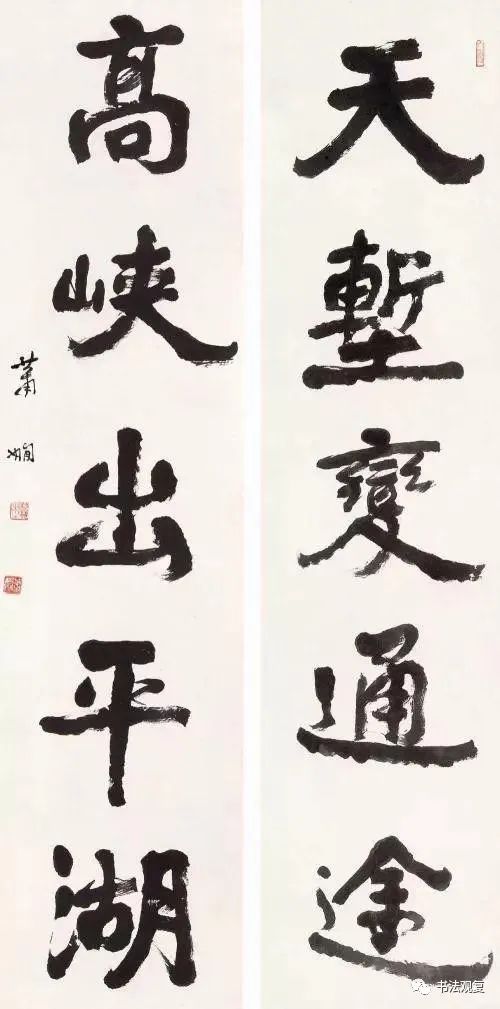 天塹變通途
高峽出平湖
蕭嫻
书法观复